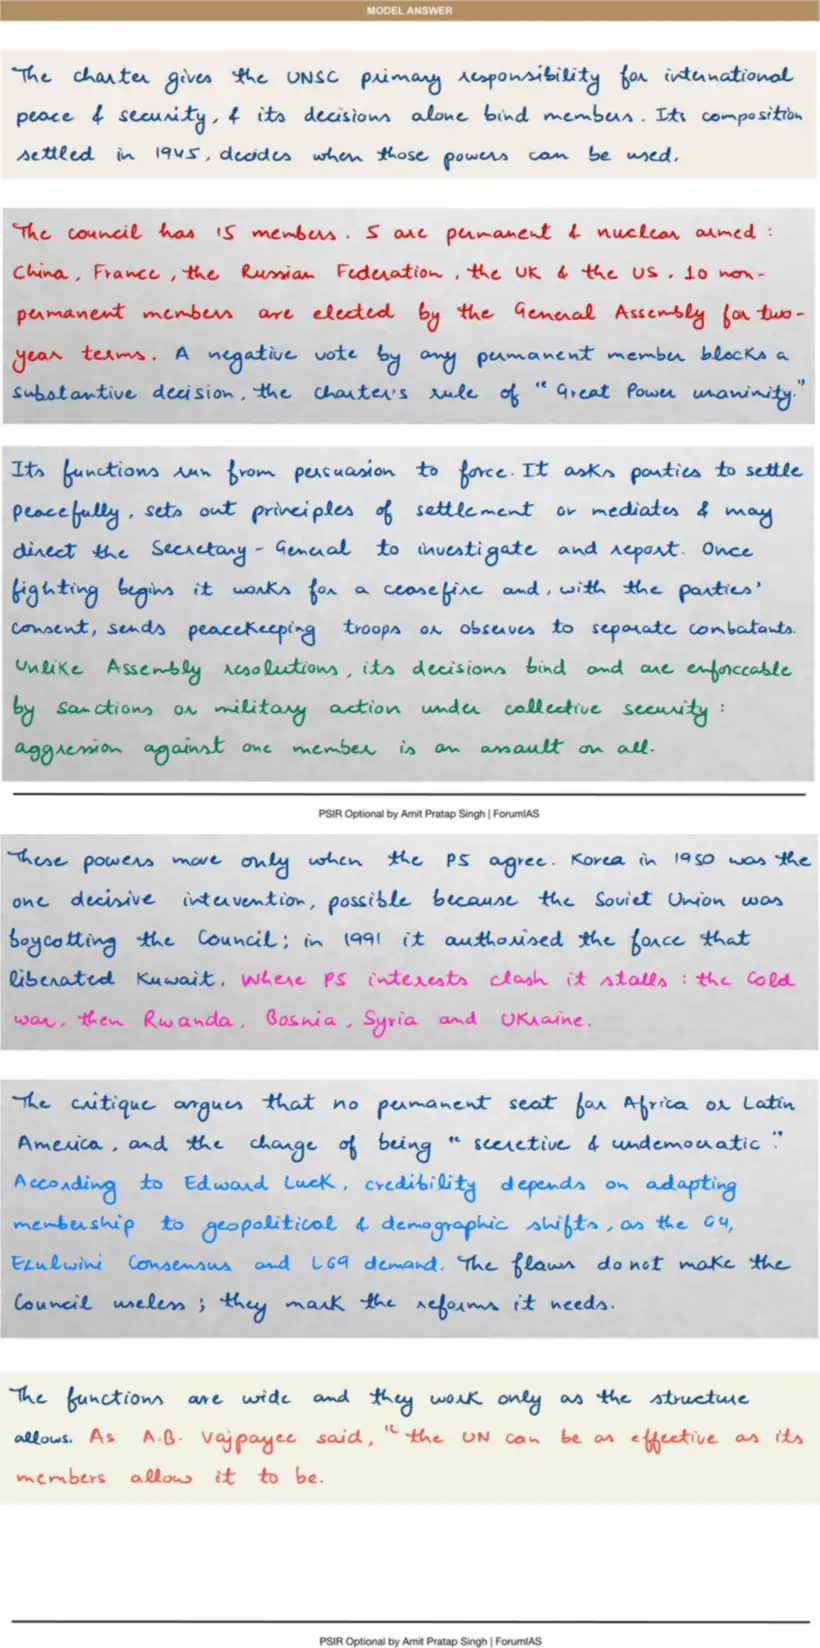 MODEL ANSWER
The charter gives the UNSC primary responsibility for international
peace & security, & its decisions alone bind members. Its composition
settled in 1945, decides when those powers can be used.
The council has 15 members. 5 are permanent & nuclear armed :
China, France, the Russian Federation, the UK & the US. 10 non-
permanent members are elected by the General Assembly for two-
year terms. A negative vote by any permanent member blocks a
substantive decision, the charter's rule of "Great Power unanimity."
Its functions run from persuasion to force. It asks parties to settle
peacefully, sets out principles of settlement or mediates & may
direct the Secretary-General to investigate and report. Once
fighting begins it works for a ceasefire and, with the parties'
consent, sends peacekeeping troops or observes to separate combatants.
Unlike Assembly resolutions, its decisions bind and are enforceable
by sanctions or military action under collective security :
aggression against one member is an assault on all.
PSIR Optional by Amit Pratap Singh | ForumIAS
These powers move only when the P5 agree. Korea in 1950 was the
one decisive intervention, possible because the Soviet Union was
boycotting the Council; in 1991 it authorised the force that
liberated Kuwait. Where P5 interests clash it stalls : the Cold
war, then Rwanda, Bosnia, Syria and Ukraine.
The critique argues that no permanent seat for Africa or Latin
America, and the charge of being "secretive & undemocratic".
According to Edward Luck, credibility depends on adapting
membership to geopolitical & demographic shifts, as the G4,
Ezulwini Consensus and L69 demand. The flaws do not make the
Council useless; they mark the reforms it needs.
The functions are wide and they work only as the structure
allows. As A.B. Vajpayee said, "the UN can be as effective as its
members allow it to be.
PSIR Optional by Amit Pratap Singh | ForumIAS